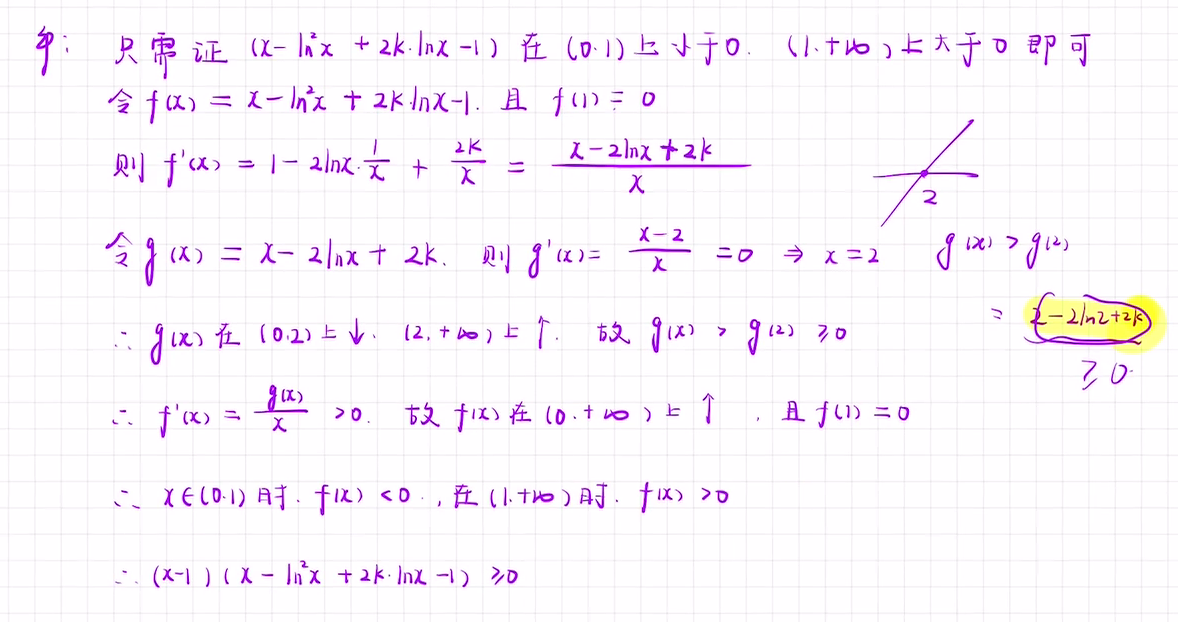 只需证 (x-ln²x + 2k·lnx -1) 在 (0.1) 上小于0. (1.+∞) 上大于0 即可
令 f(x) = x-ln²x + 2k·lnx-1. 且 f(1) = 0
则 f'(x) = 1-2lnx·1/x + 2k/x = (x-2lnx+2k)/x
2
令 g(x) = x-2lnx + 2k. 则 g'(x) = (x-2)/x = 0 ⇒ x=2 g(x) > g(2)
= 2-2ln2+2k
≥0.
∴ g(x) 在 (0.2) 上↓. (2.+∞) 上↑. 故 g(x) > g(2) ≥0
∴ f'(x) = g(x)/x >0. 故 f(x) 在 (0.+∞) 上↑, 且 f(1) = 0
∴ x∈(0.1) 时. f(x) <0., 在 (1.+∞) 时. f(x) >0
∴ (x-1) (x-ln²x + 2k·lnx -1) ≥0